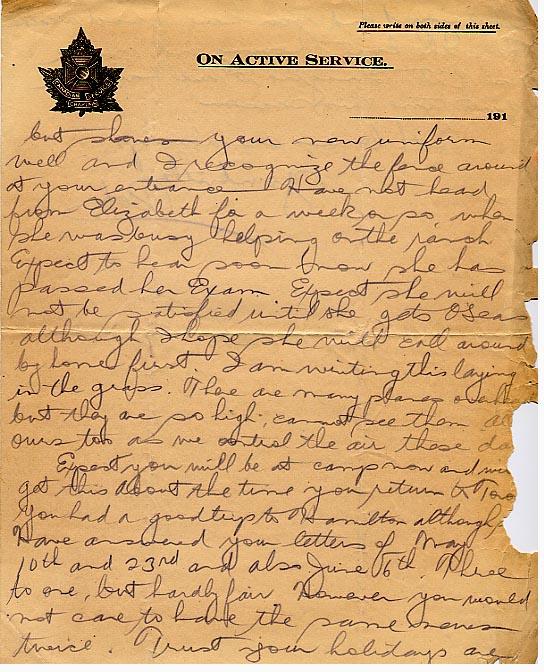 Please write on both sides of this sheet.
ON ACTIVE SERVICE.
191
but shows your new uniform
well and I recognize the fence around
at your entrance. Have not head
from Elizabeth for a week or so, when
she was busy helping on the ranch
Expect to hear soon now she has
passed her Exam. Expect she will
not be satisfied until she gets O'Seas
although I hope she will call around
by home first. I am writing this laying
in the grass. There are many planes
but they are so high, cannot see them
ours too as we control the air these da
Expect you will be at camp now and
get this about the time you return to Toro
you had a good trip to Hamilton although
Have answered your letters of May
10th and 23rd and also June 6th. Three
to one, but hardly fair However you would
not care to have the same news
twice. Trust your holidays are